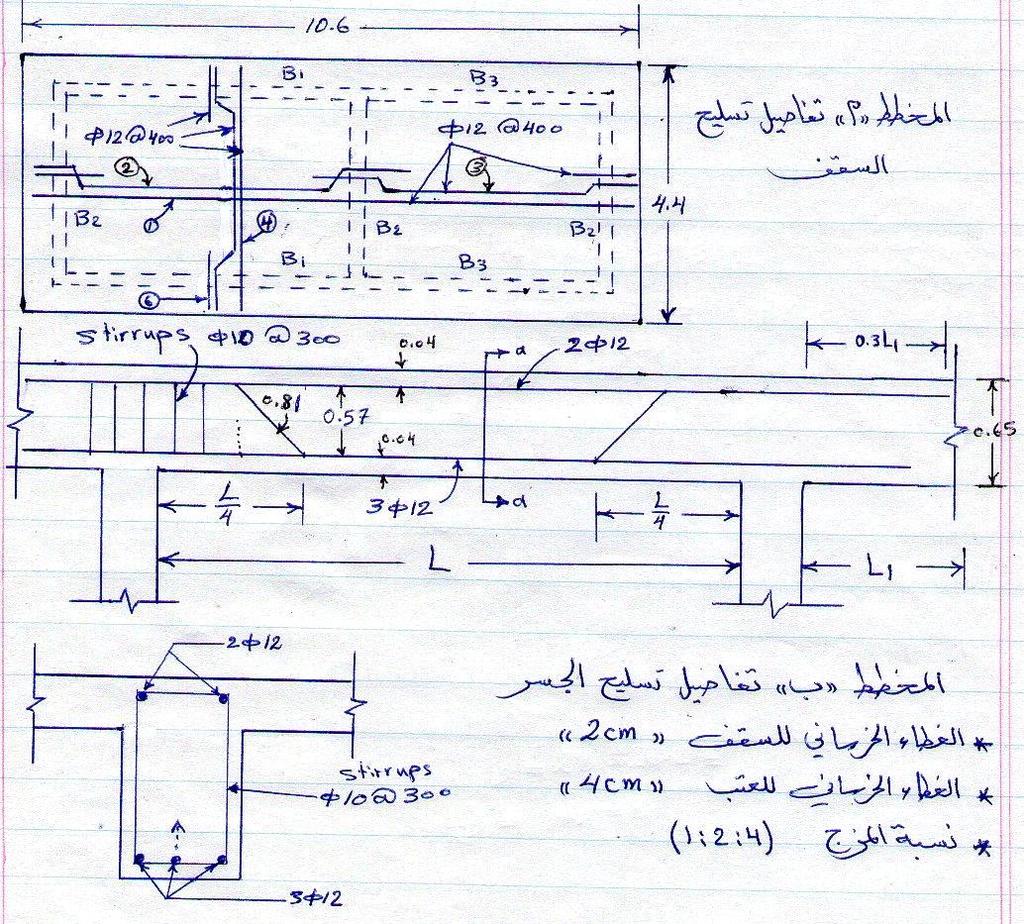 10.6
B1
B3
Φ12@400
Φ12@400
2
3
B2
1
4
B2
B2
B1
B3
6
4.4
المخطط «أ» تفاصيل تسليح
السقف
stirrups Φ10@300
0.04
2Φ12
0.3L1
0.81
0.57
0.04
0.65
a
3Φ12
a
L/4
L/4
L
L1
2Φ12
stirrups
Φ10@300
3Φ12
المخطط «ب» تفاصيل تسليح الجسر
* الغطاء الخرساني للسقف «2cm»
* الغطاء الخرساني للعتب «4cm»
* نسبة المزج (1:2:4)